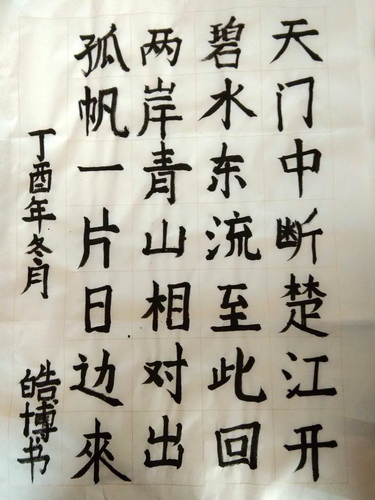 天门中断楚江开
碧水东流至此回
两岸青山相对出
孤帆一片日边來
丁酉年冬月
皓博书